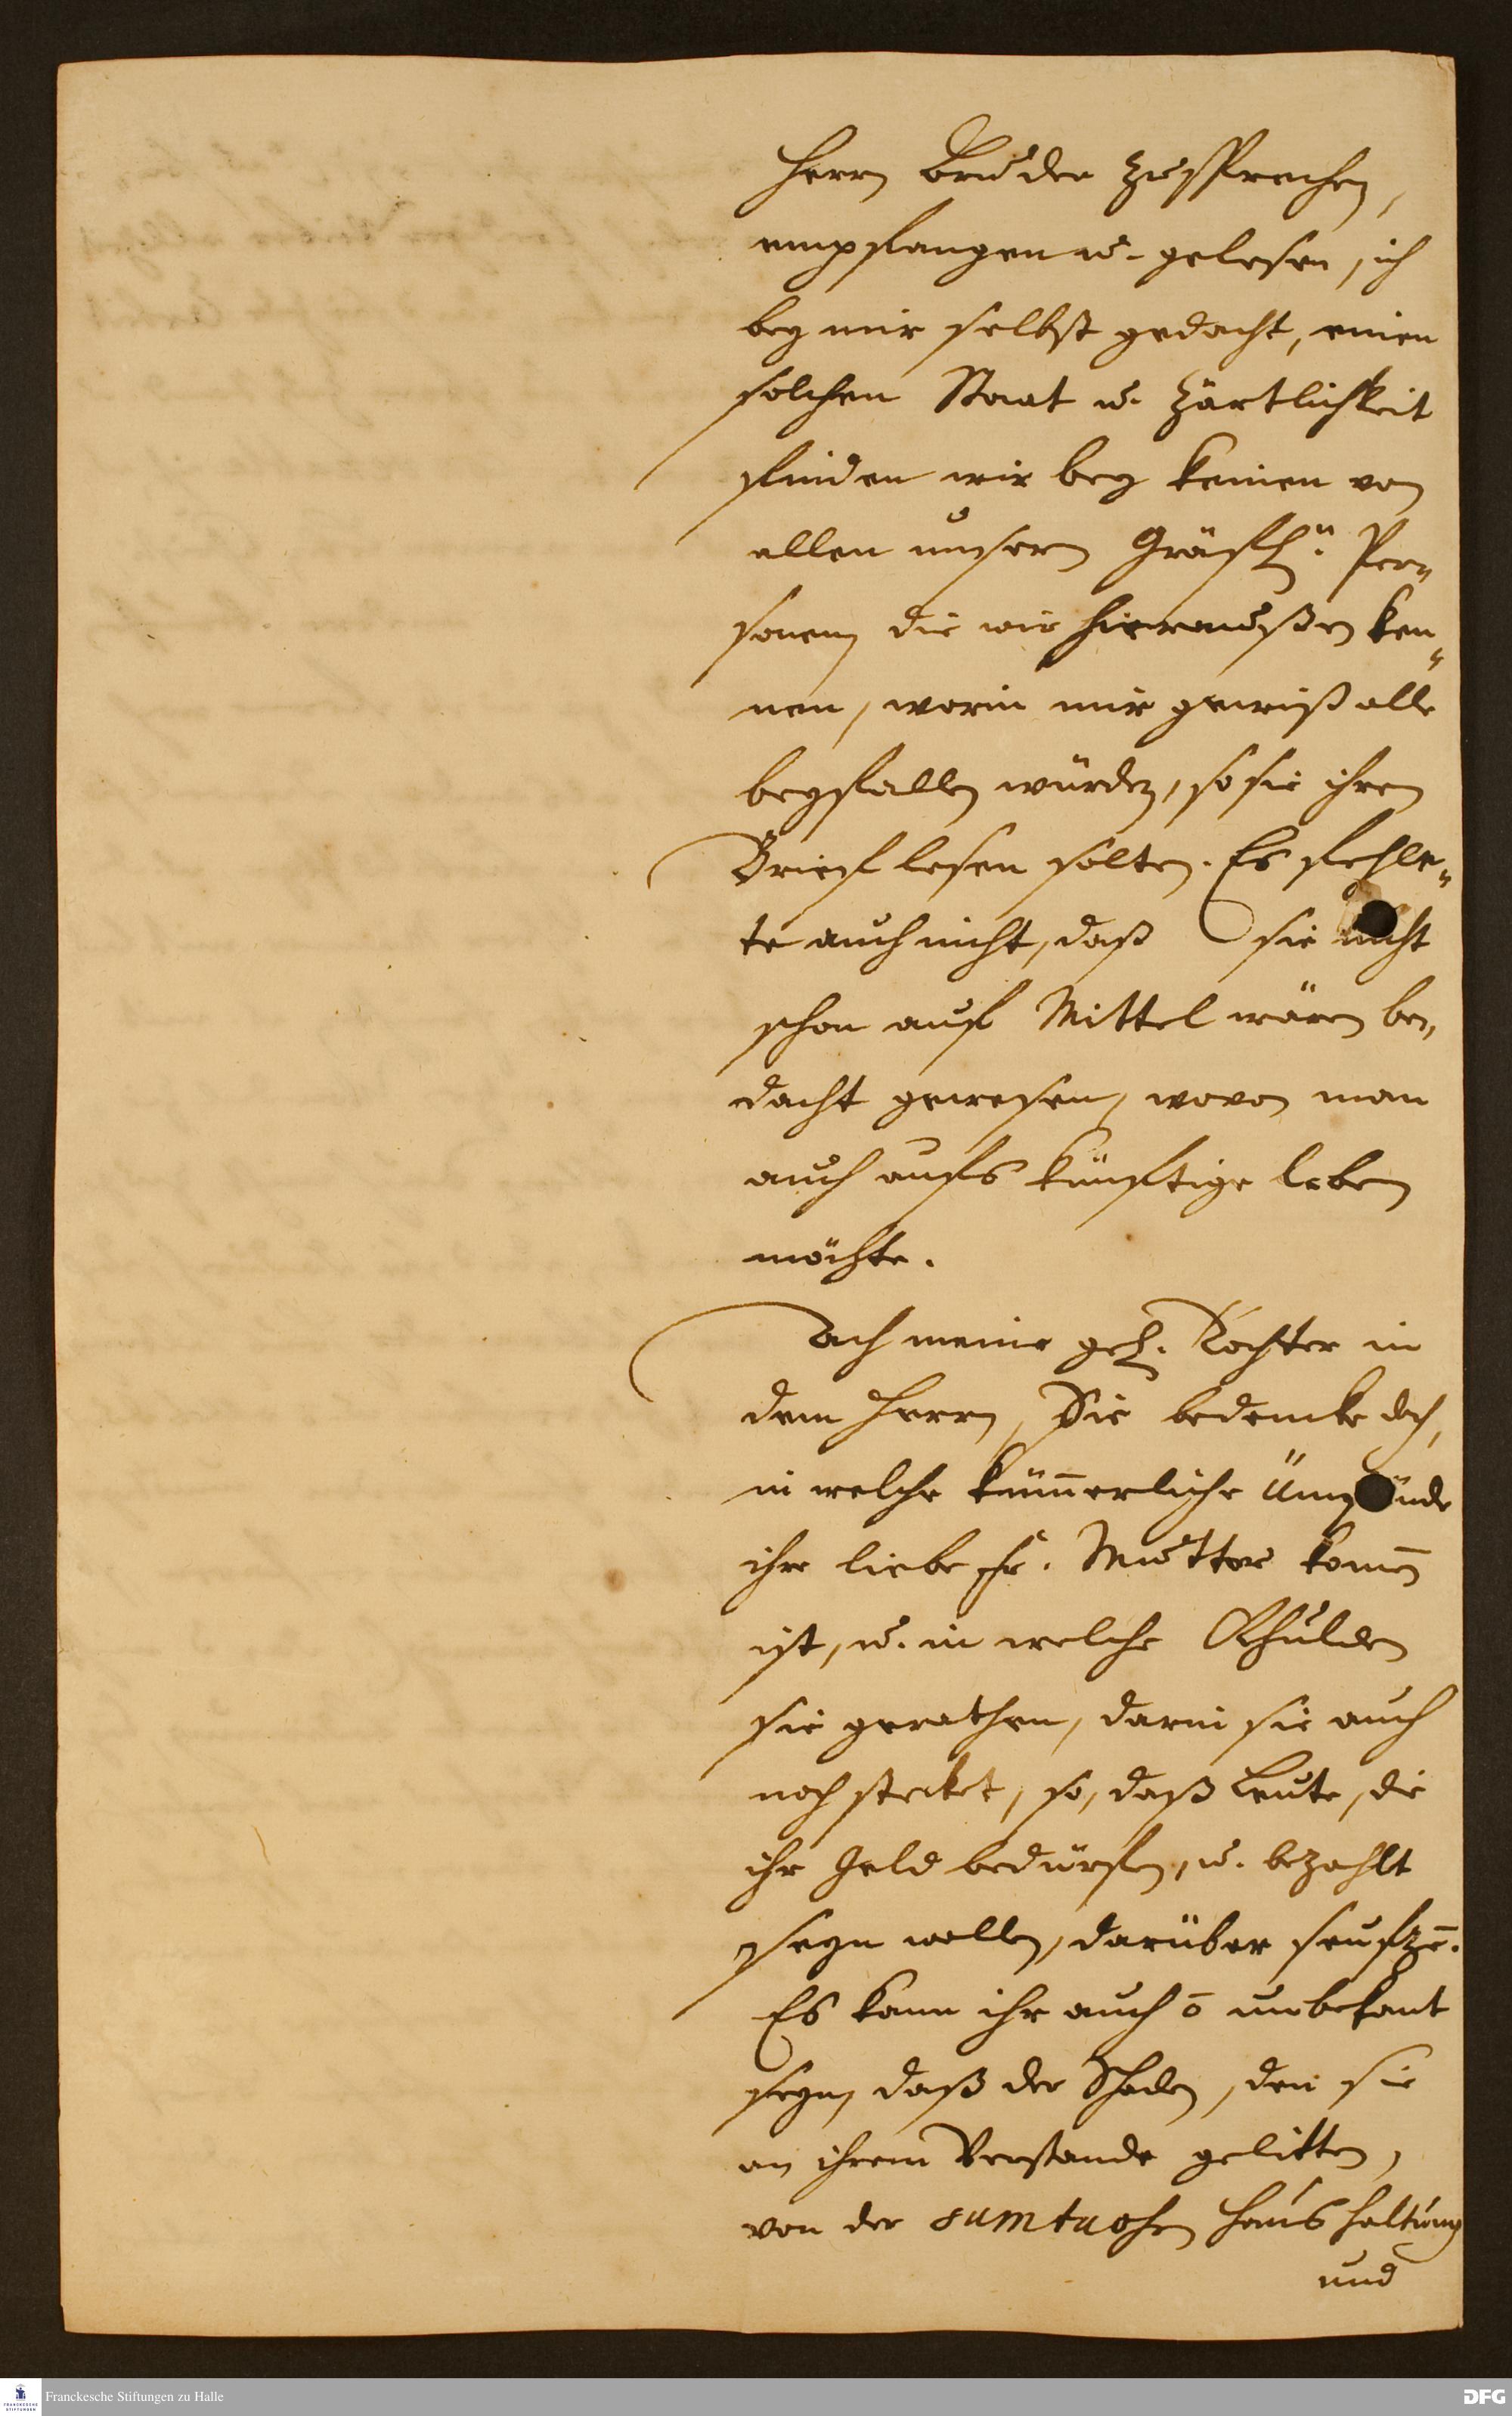 Herrn Bruder zusprechen,
empfangen u. gelesen, ich
bey mir selbst gedacht, einen
solchen Staat u. Zärtlichkeit
finden wir bey keinen von
allen unsern Gräfl. Per-
sonen, die wir hieraussen ken-
nen, worin mir gewiß alle
beyfallen würden, so sie ihren
Brief lesen solten. Es fehle-
te auch nicht, daß sie nicht
schon auf Mittel wären be-
dacht gewesen, wovon man
auch aufs künftige leben
möchte.
Ach meine gel. Tochter in
dem Herrn, Sie bedencke doch,
in welche küm̄erliche Umstände
ihre liebe Fr. Mutter kom̄en
ist, u. in welche Schulden
sie gerathen, darin sie auch
noch stecket, so, daß Leute, die
ihr Geld bedürfen, u. bezahlt
seyn wollen, darüber seufzē.
Es kann ihr auch ō unbekant
seyn, daß der Schaden, den sie
an ihrem Verstande gelitten,
von der sumtuosen Haushaltung
und
Franckesche Stiftungen zu Halle
DFG